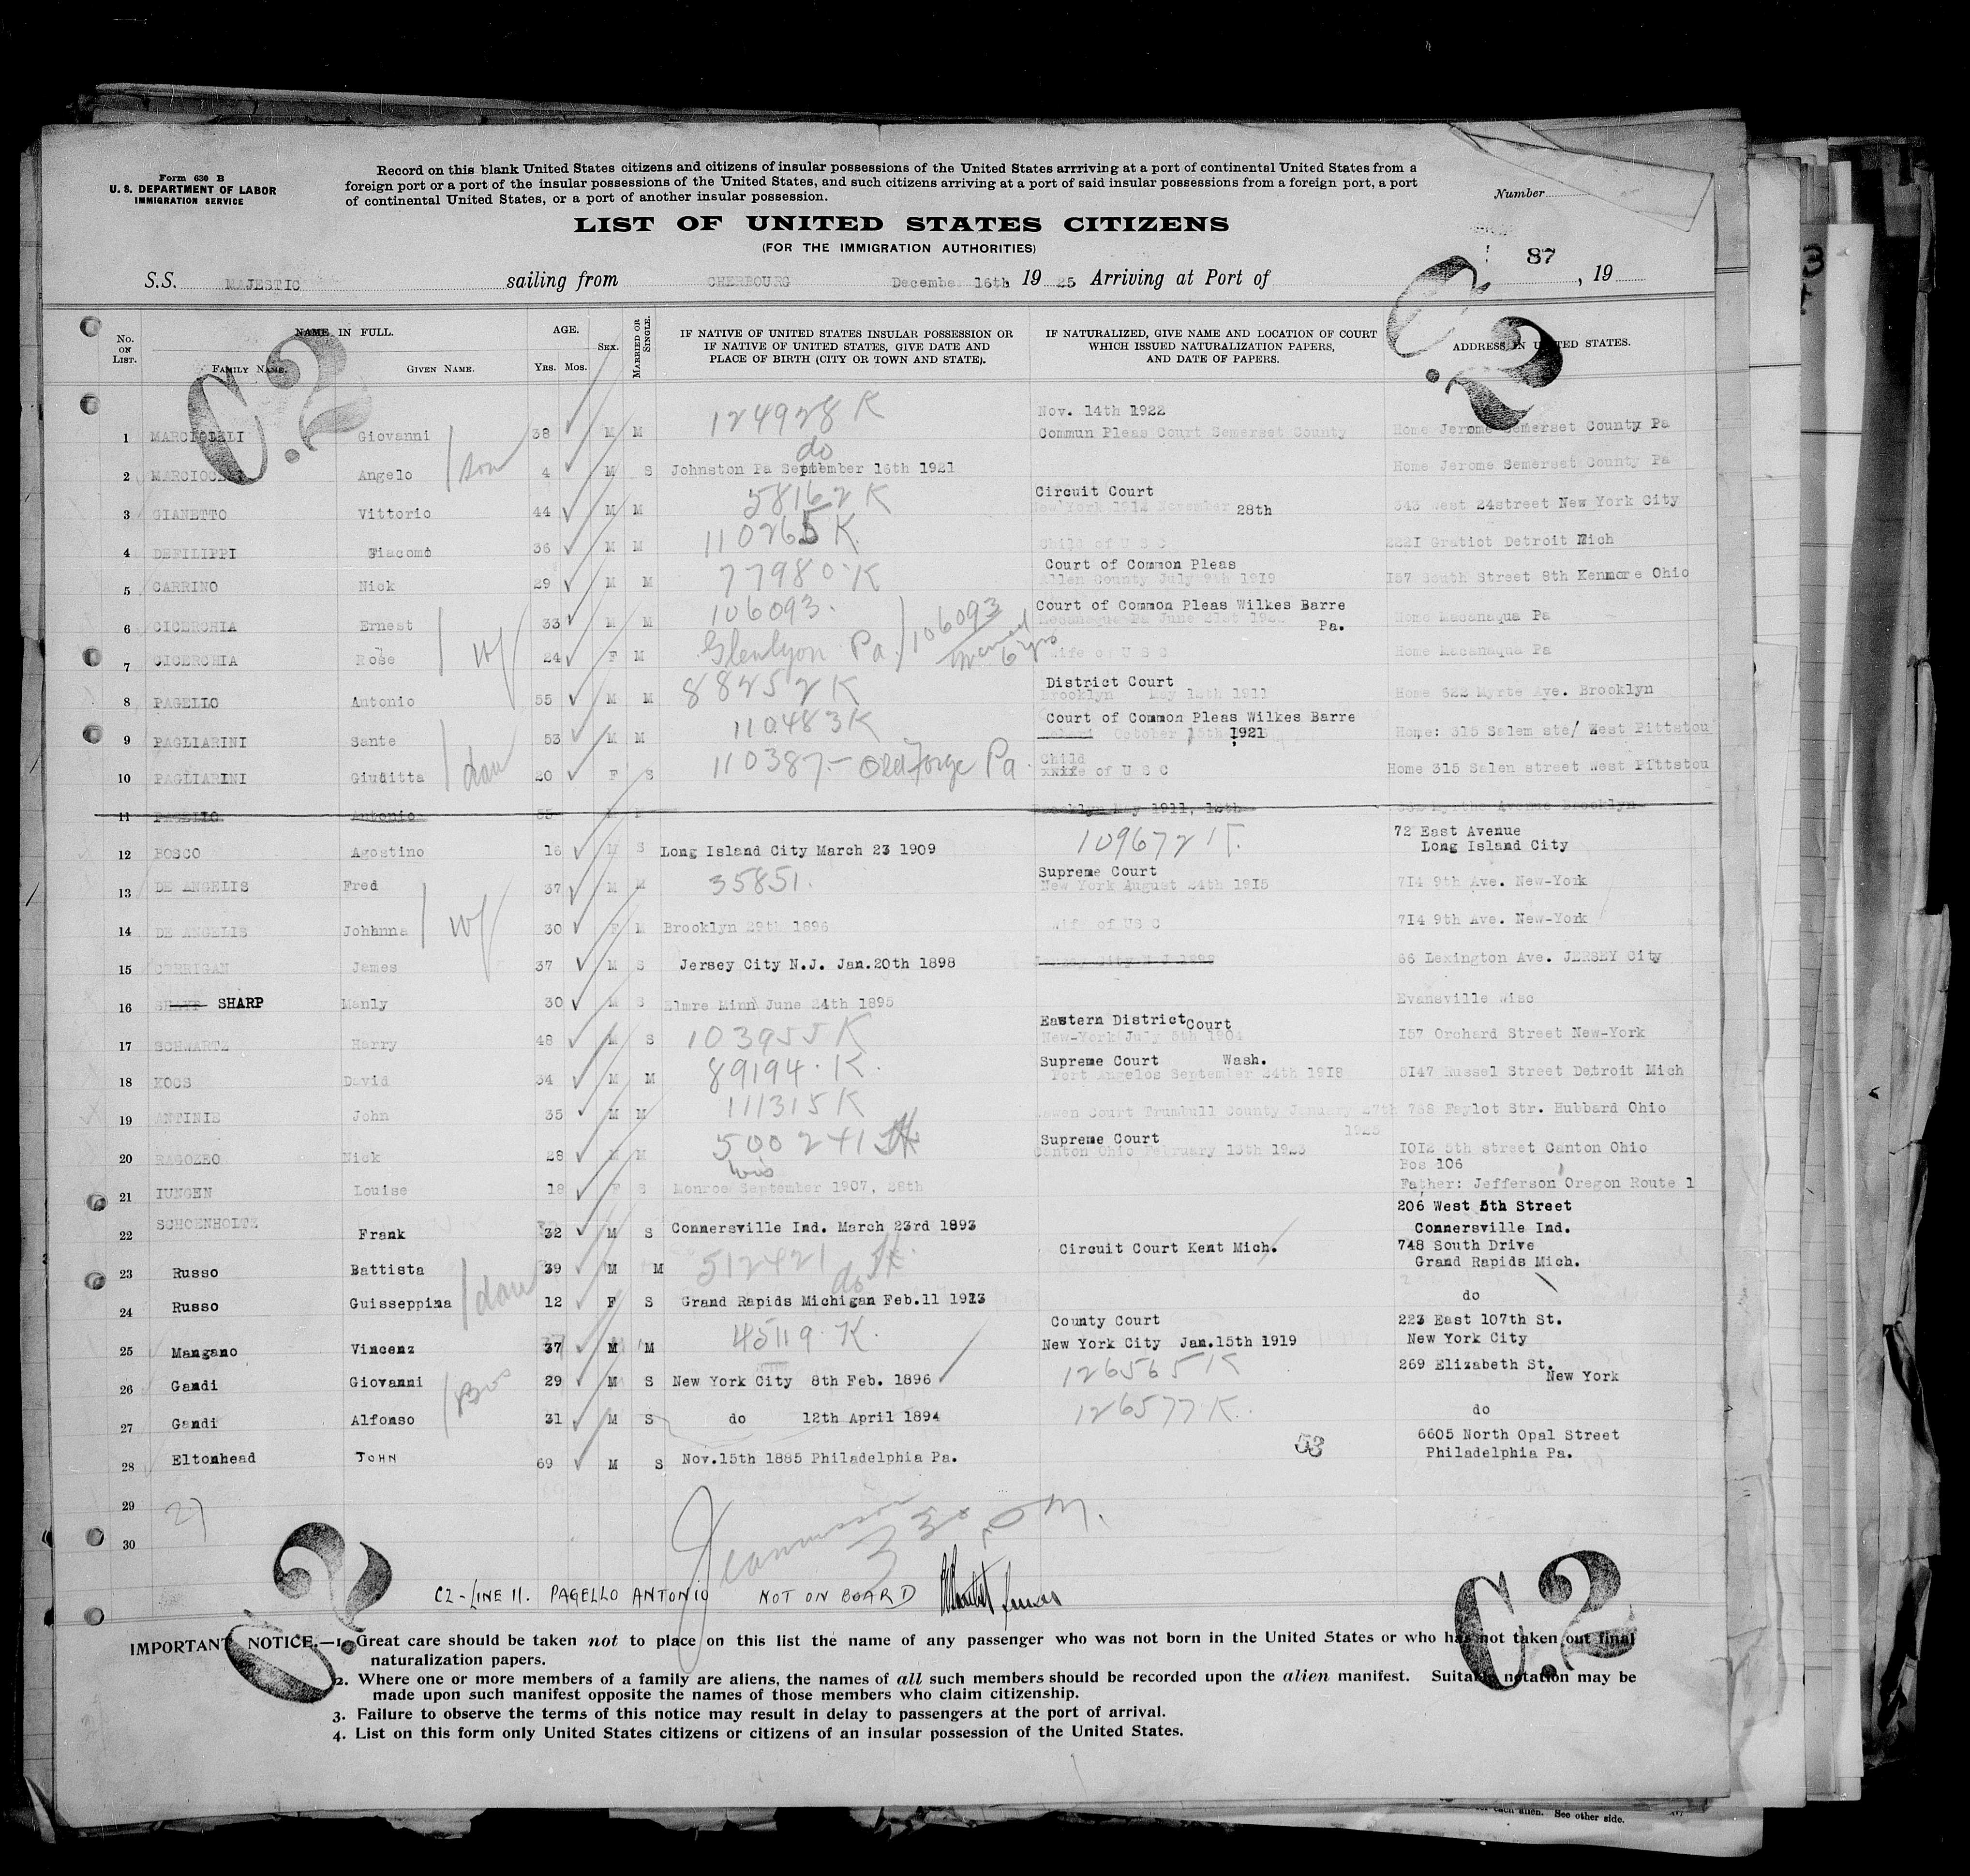 Form 630 B
U. S. DEPARTMENT OF LABOR
IMMIGRATION SERVICE
Record on this blank United States citizens and citizens of insular possessions of the United States arrriving at a port of continental United States from a
foreign port or a port of the insular possessions of the United States, and such citizens arriving at a port of said insular possessions from a foreign port, a port
of continental United States, or a port of another insular possession.
Number
LIST OF UNITED STATES CITIZENS
(FOR THE IMMIGRATION AUTHORITIES)
87
S.S. MAJESTIC sailing from CHERBOURG December 16th 1925 Arriving at Port of , 19
C.2
C.2
No. ON LIST.
NAME IN FULL.
FAMILY NAME. GIVEN NAME.
AGE.
Yrs. Mos.
SEX.
MARRIED OR SINGLE.
IF NATIVE OF UNITED STATES INSULAR POSSESSION OR
IF NATIVE OF UNITED STATES, GIVE DATE AND
PLACE OF BIRTH (CITY OR TOWN AND STATE).
IF NATURALIZED, GIVE NAME AND LOCATION OF COURT
WHICH ISSUED NATURALIZATION PAPERS,
AND DATE OF PAPERS.
ADDRESS IN UNITED STATES.
124928 K Nov. 14th 1922
1 Giovanni 38 M M Commun Pleas Court Somerset County Home Jerome Somerset County Pa
son do
2 Angelo 4 M S Johnston Pa September 16th 1921 Home Jerome Somerset County Pa
58162 K Circuit Court
3 GIANETTO Vittorio 44 M M New York 1914 November 28th 343 West 24street New York City
110265 K.
4 DEFILIPPI Giacomo 36 M M Child of U S C Gratiot Detroit Mich
77980 K Court of Common Pleas
5 CARRINO Nick 29 M M Allen County July 9th 1919 157 South Street 8th Kenmore Ohio
106093. Court of Common Pleas Wilkes Barre
6 CICERCHIA Ernest 33 M M June 21st Pa. Home Macanaqua Pa
W/ Glenlyon Pa. 106093 married 6 yrs
7 CICERCHIA Rose 24 F M wife of U S C Home Macanaqua Pa
88252 K District Court
8 PAGELLO Antonio 55 M M Brooklyn May 12th 1911 Home 622 Myrte Ave. Brooklyn
110483 K Court of Common Pleas Wilkes Barre
9 PAGLIARINI Sante 53 M M October 1921 Home: 315 Salem ste/ West Pittstou
dau 110387 - Old Forge Pa. Child
10 PAGLIARINI Giuditta 20 F S of U S C Home 315 Salen street West Pittstou
11 PAGELLO Antonio 55 M Brooklyn May 1911, 12th Avenue Brooklyn
109672 K. 72 East Avenue
12 BOSCO Agostino 16 M S Long Island City March 23 1909 Long Island City
35851. Supreme Court
13 DE ANGELIS Fred 37 M M New York August 24th 1915 714 9th Ave. New-York
W/
14 DE ANGELIS Johanna 30 F M Brooklyn 29th 1896 wife of US C 714 9th Ave. New-York
15 CORRIGAN James 37 M S Jersey City N.J. Jan.20th 1898 66 Lexington Ave. JERSEY City
16 SHARP Manly 30 M S Elmre Minn June 24th 1895 Evansville Wisc
103955 K Eastern District Court
17 SCHWARTZ Harry 48 M S New-York July 5th 1904 157 Orchard Street New-York
89194. K. Supreme Court Wash.
18 KOOS David 34 M M Port Angelos September 24th 1918 5147 Russel Street Detroit Mich
111315 K
19 ANTINIE John 35 M M Court Trumbull County January 27th 1925 738 Faylot Str. Hubbard Ohio
500241 Supreme Court
20 RAGOZEO Nick 28 M M Canton Ohio February 13th 1923 1012 5th street Canton Ohio
Wis Bos 106
21 IUNGEN Louise 18 F S Monroe September 1907, 28th Father: Jefferson Oregon Route 1
206 West 5th Street
22 SCHOENHOLTZ Frank 32 M S Connersville Ind. March 23rd 1893 Connersville Ind.
Circuit Court Kent Mich. 748 South Drive
23 Russo Battista 39 M M 512421 Grand Rapids Mich.
dau do
24 Russo Guisseppina 12 F S Grand Rapids Michigan Feb.11 1913 do
45119. K. County Court 223 East 107th St.
25 Mangano Vincenz 37 M M New York City Jan.15th 1919 New York City
126565 K 269 Elizabeth St.
26 Gandi Giovanni 29 M S New York City 8th Feb. 1896 New York
Bros 126577 K.
27 Gandi Alfonso 31 M S do 12th April 1894 do
53 6605 North Opal Street
28 Eltonhead JOHN 69 M S Nov.15th 1885 Philadelphia Pa. Philadelphia Pa.
29 27
30
3 30 P.M.
C2-LINE 11. PAGELLO ANTONIO NOT ON BOARD
C.2
C.2
IMPORTANT NOTICE.—1. Great care should be taken not to place on this list the name of any passenger who was not born in the United States or who has not taken out final
naturalization papers.
2. Where one or more members of a family are aliens, the names of all such members should be recorded upon the alien manifest. Suitable notation may be
made upon such manifest opposite the names of those members who claim citizenship.
3. Failure to observe the terms of this notice may result in delay to passengers at the port of arrival.
4. List on this form only United States citizens or citizens of an insular possession of the United States.
each alien. See other side.